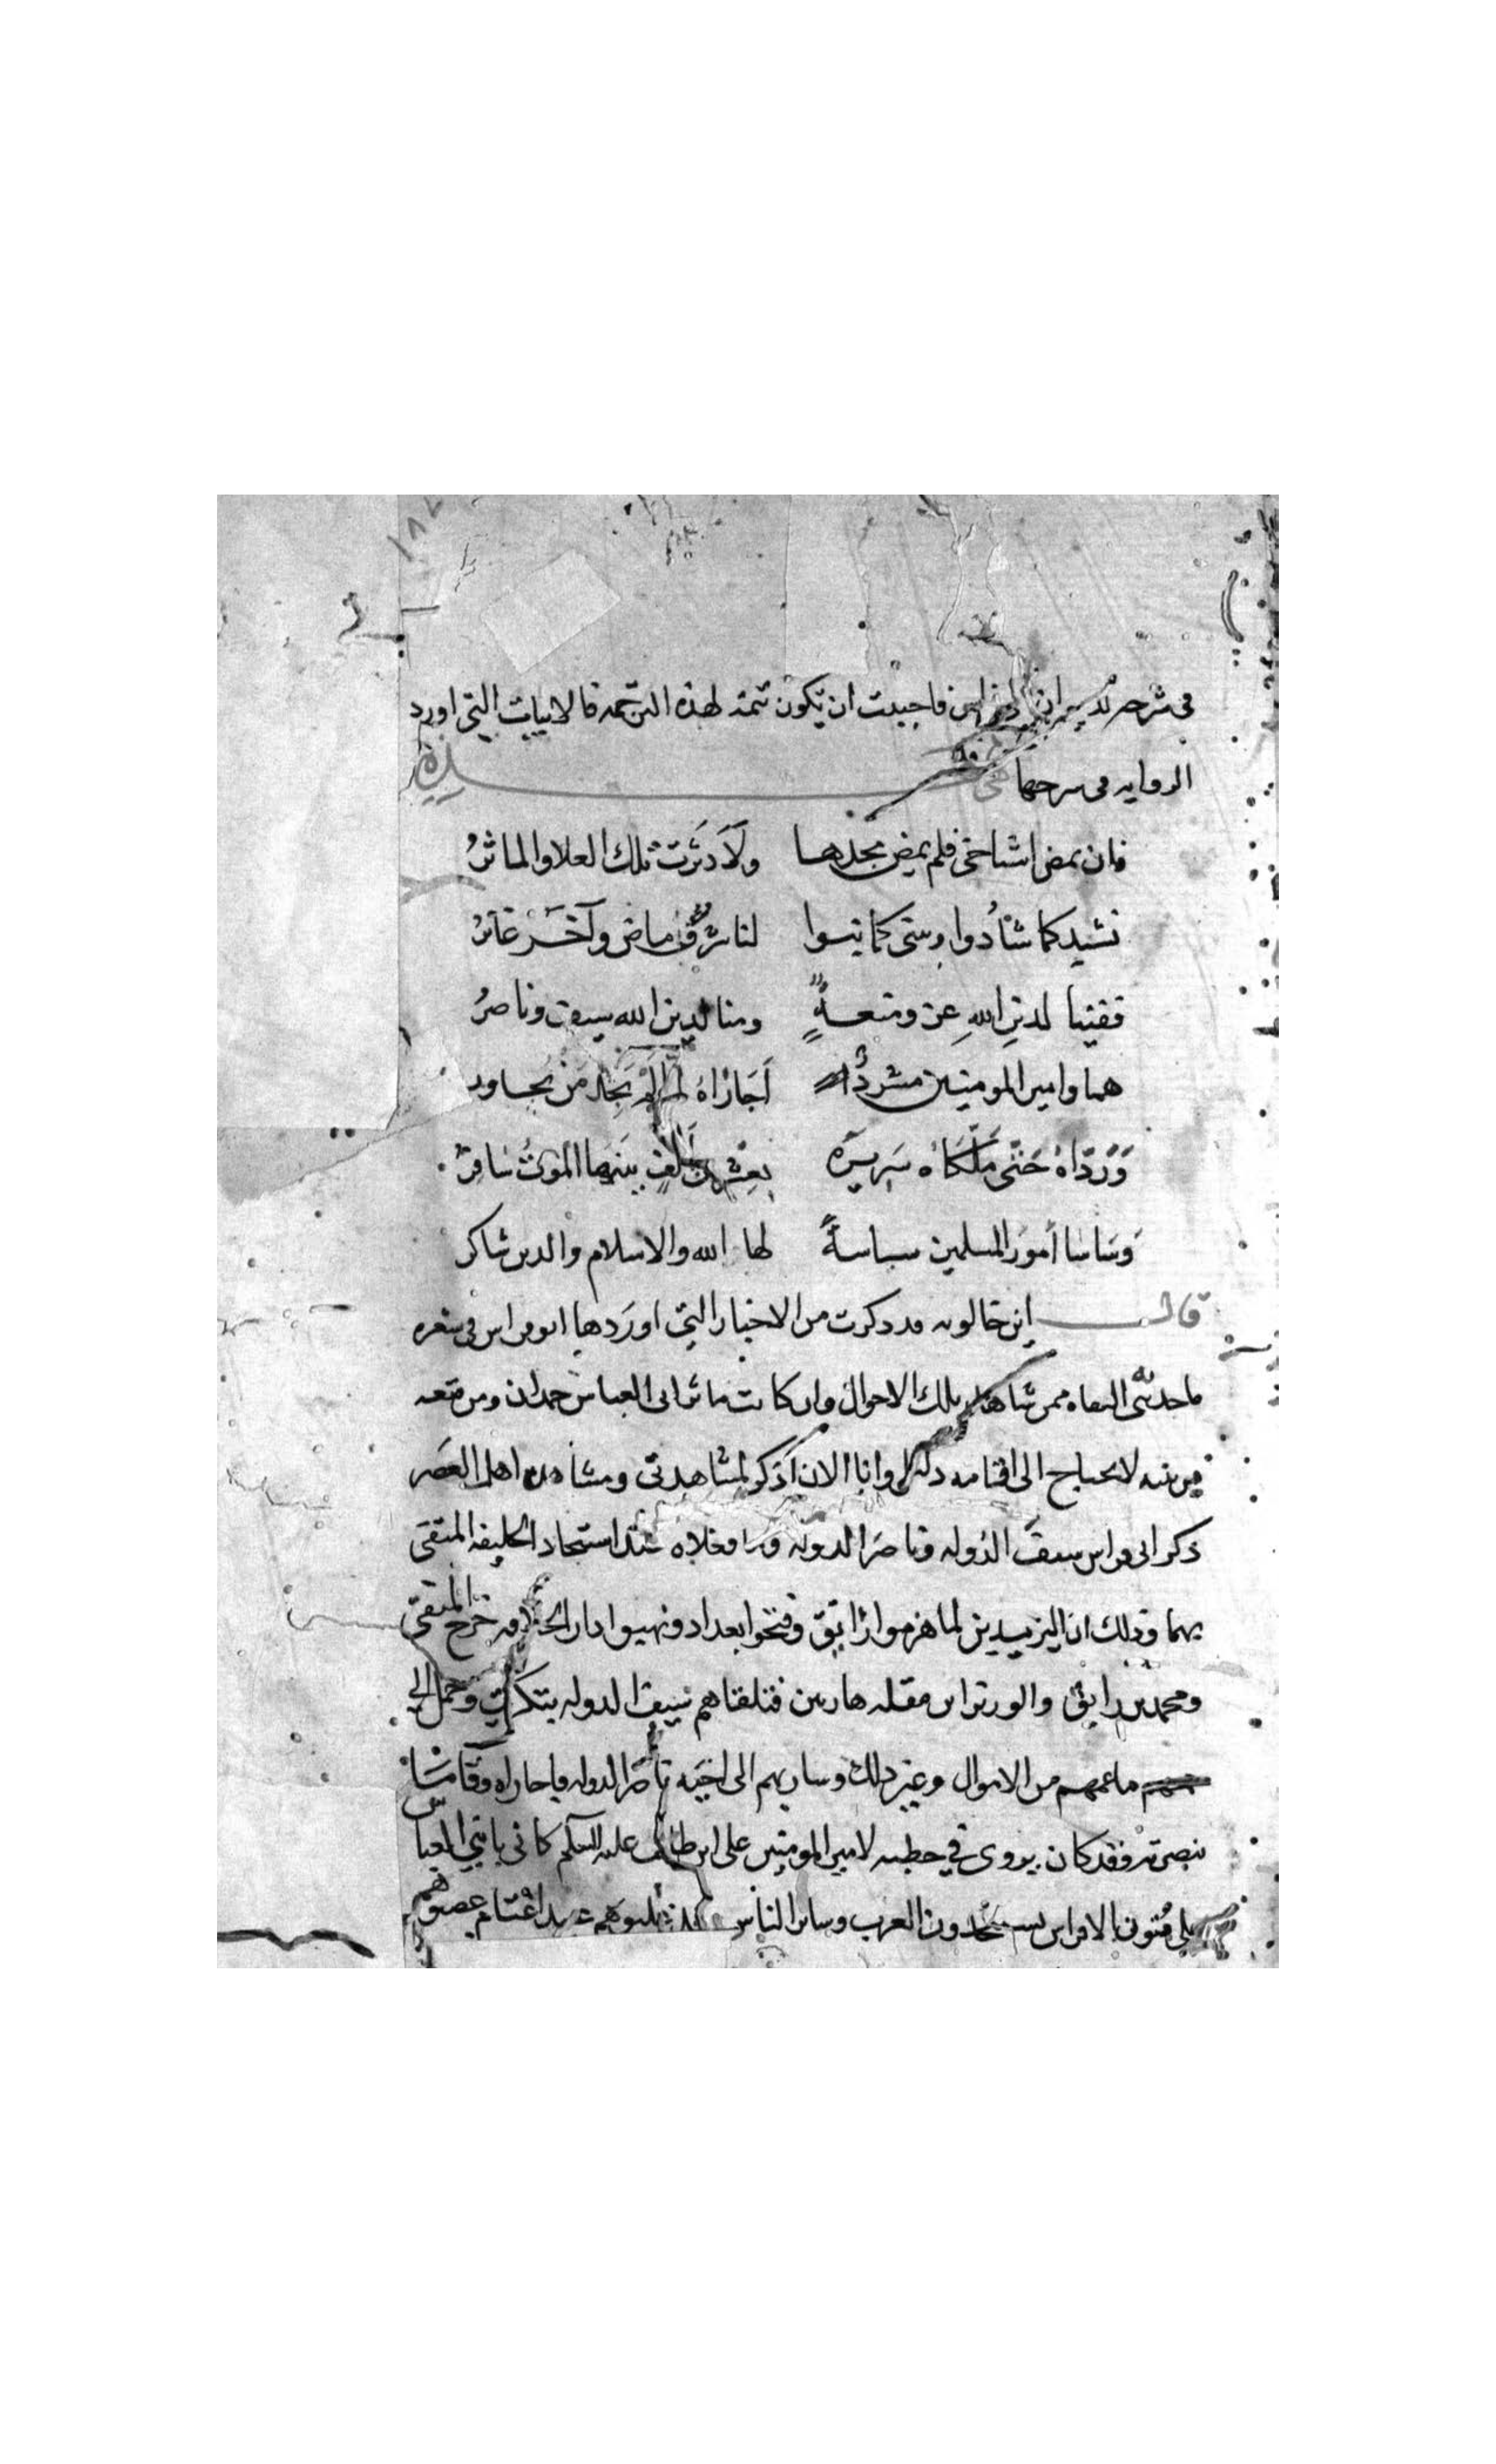 ١٨٢
في شرحه لديوان ابي فراس فاحببت ان يكون تتمة لهذه الترجمه فالابيات التي اورد
الروايه في شرحها هي هذه
فان يمض اشياخي فلم يمض مجدها ولا دثرت تلك العلا والماثرُ
نشيد كما شادُوا ونبني كما بنوا لنا شرفٌ ماض وآخَر غابرُ
ففينا لدينِ اللهِ عز ومنعةٌ ومنا لدين الله سيف وناصرُ
هما وامير المومنين مشردٌ اَجَازَاهُ لما لَمْ يَجِد مَنْ يجاور
وَرَدّاهُ حَتّى مَلّكَاهُ سَرِيرَه بعشرين ألفٍ بينها الموتُ سَافِرُ
وَسَاسَا أمورَ المسلمين سياسةً لها الله والاسلام والدين شاكر
قال ابن خالويه قد ذكرت من الاخبار التي اورَدها ابو فراس في شعره
ما حدثني الثقاه ممن شاهد تلك الاحوال وان كانت ماثر ابي العباس حمدان ومن معه
لا يحتاج الى اقامه دليل وانا الان اَذكر لمشاهدتي ومشاهده اهل العصر
ذكر ابي فراس سيفَ الدّوله وناصرَ الدوله وما فعلاه عند استنجاد الخليفه المتقي
بهما وذلك ان اليزيديين لما هزموا رَايق وفتحوا بغداد ونهبوا دار الخلافه خرج المتقي
ومحمد بن رايق والوزير ابن مقله هاربين فتلقاهم سيف الدوله بتكريت وحمل الي
ما عمهم من الاموال وغير ذلك وسار بهم الى اخيه ناصر الدوله فاجاراه وقامَا
بنصرته وقد كان يروى في خطبه لامير المومنين على ابن طالب عليه السلم كاني بابني العباس
يستنجدون العرب وساير الناس